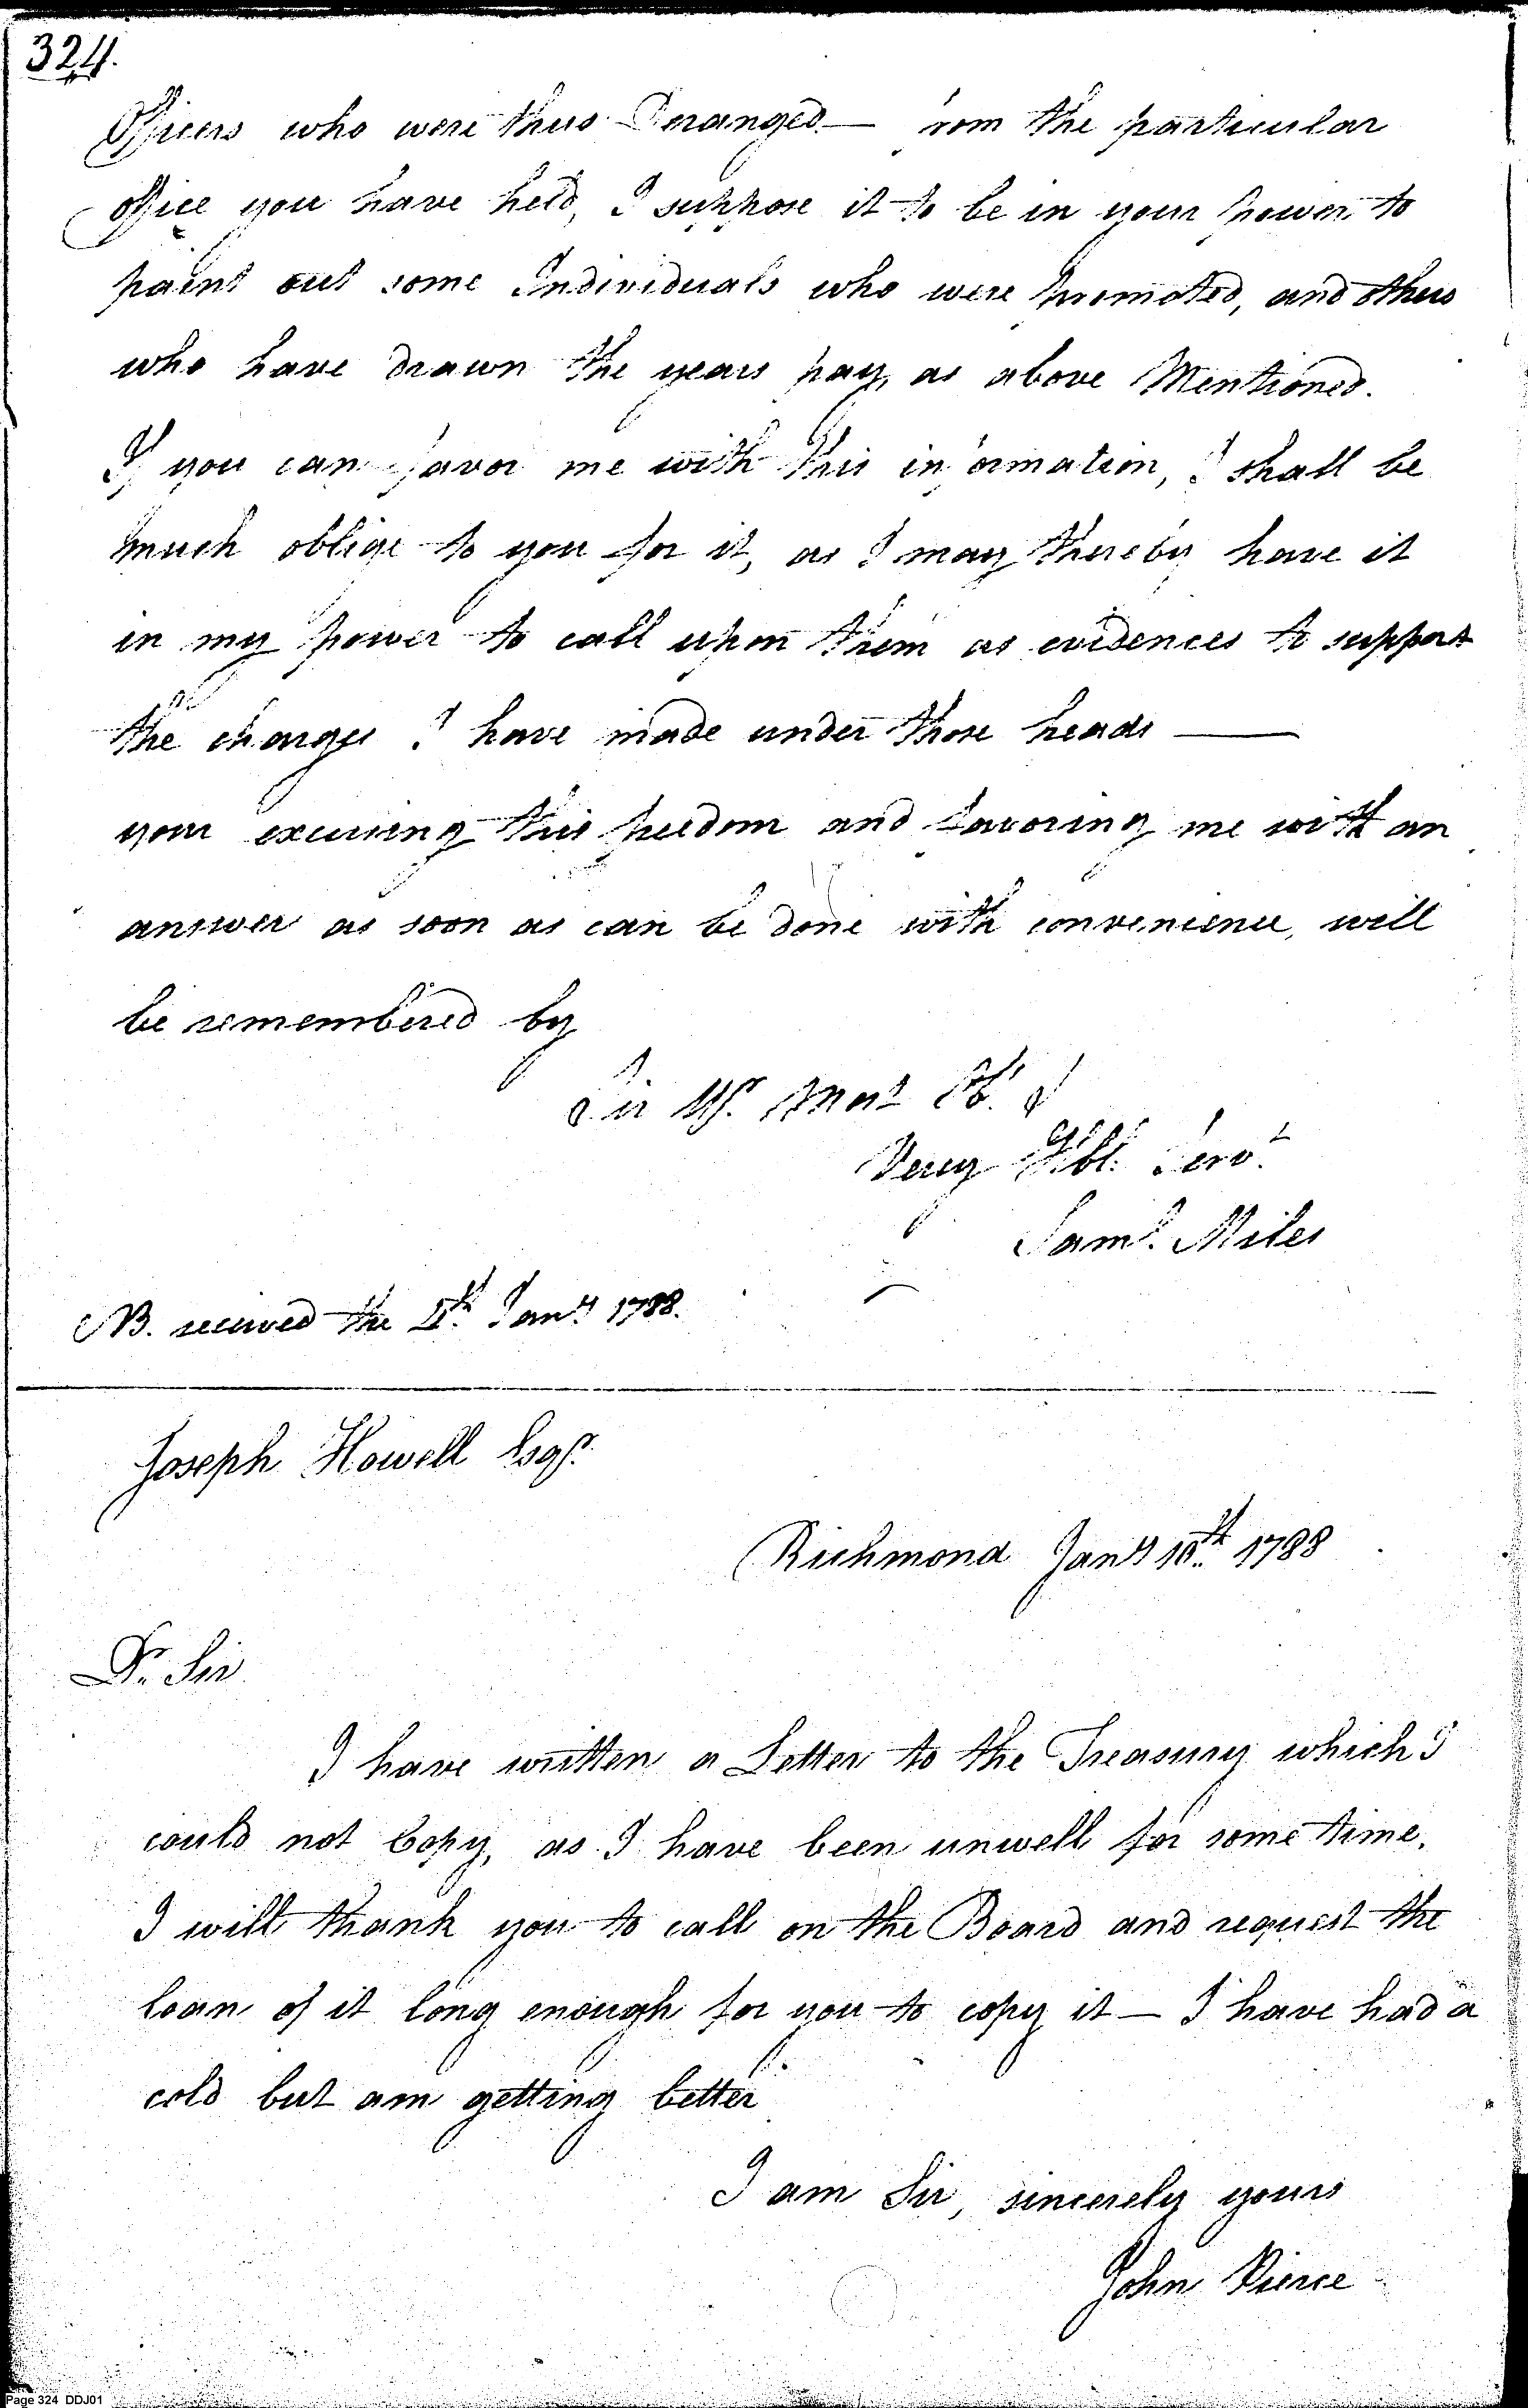 324.
Officers who were thus Deranged — from the particular
office you have held, I suppose it to be in your power to
paint out some Individuals who were promoted, and others
who have drawn the years pay, as above Mentioned.
If you can favor me with this information, I shall be
much oblige to you for it, as I may thereby have it
in my power to call upon them as evidences to support
the charges I have made under those heads —
your excusing this freedom and favoring me with an
answer as soon as can be done with convenience, will
be remembered by
Sir Yr. Most Ob. &
Very Hbl. Servt.
Saml. Miles
NB. received the 5th. Jany 1788.
Joseph Howell Esqr.
Richmond Jany 10th. 1788
Dr. Sir
I have written a Letter to the Treasury which I
could not Copy, as I have been unwell for some time.
I will thank you to call on the Board and request the
loan of it long enough for you to copy it — I have had a
cold but am getting better
I am Sir, sincerely yours
John Pierce
Page 324 DDJ01